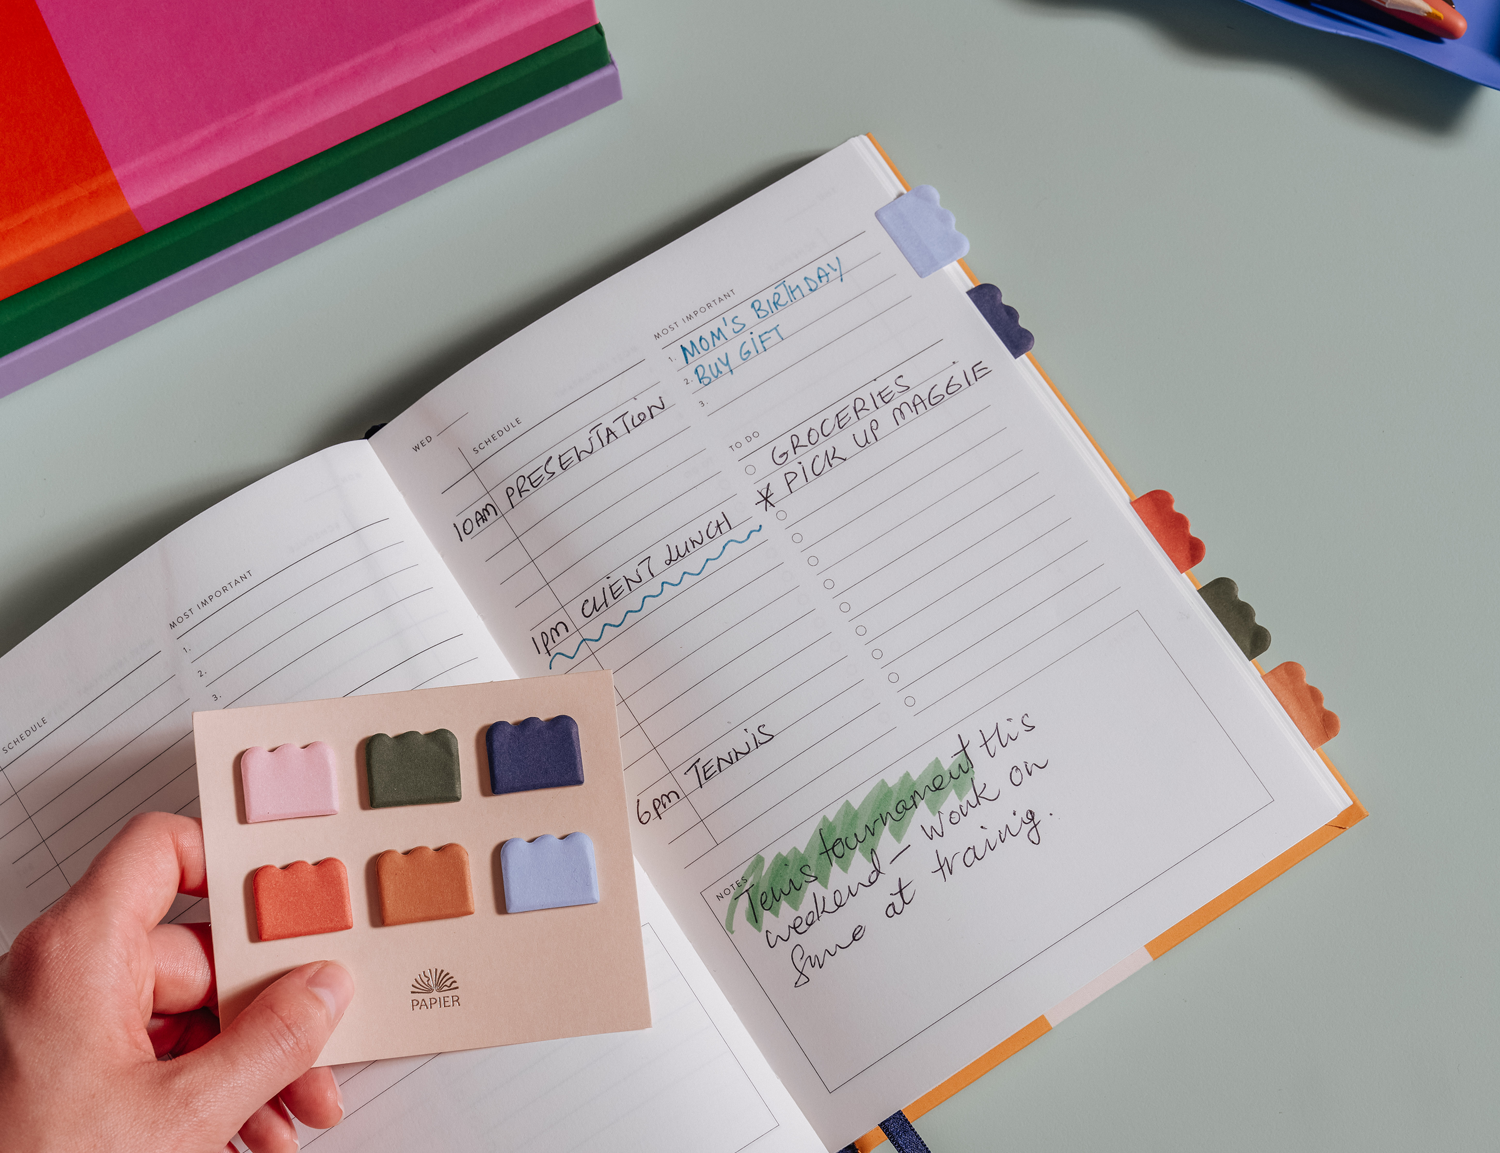 SCHEDULE
MOST IMPORTANT
1.
2.
3.
WED
SCHEDULE
10AM PRESENTATION
1pm CLIENT LUNCH
6pm TENNIS
MOST IMPORTANT
1. MOM'S BIRTHDAY
2. BUY GIFT
3.
TO DO
GROCERIES
PICK UP MAGGIE
NOTES
Tenis tournament this
weekend - work on
at training.
PAPIER